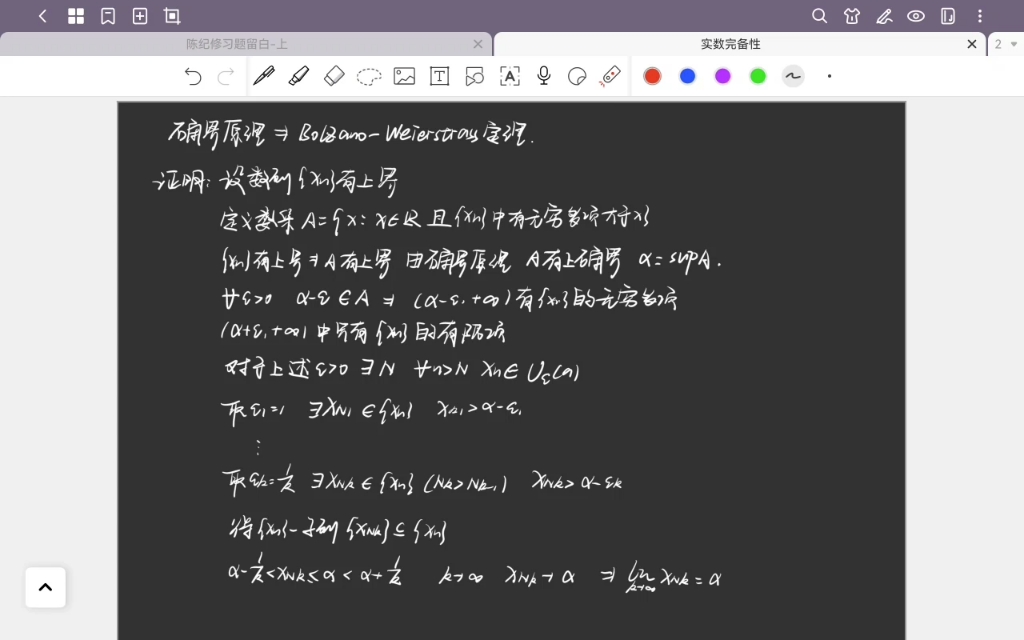 陈纪修习题留白-上
实数完备性
2
确界原理 ⇒ Bolzano-Weierstrass定理.
证明: 设数列{xn}有上界
定义数集 A={x: x∈R 且{xn}中有无穷多项大于x}
{xn}有上界⇒A有上界 由确界原理 A有上确界 α=supA.
∀ε>0 α-ε∈A ⇒ (α-ε,+∞)有{xn}的无穷多项
(α+ε,+∞)中只有{xn}的有限项
对于上述ε>0 ∃N ∀n>N xn∈Uε(a)
取ε1=1 ∃xN1∈{xn} xN1>α-ε1
⋮
取εk=1/k ∃xNk∈{xn} (Nk>Nk-1) xNk>α-εk
得{xn}一子列{xNk}⊆{xn}
α-1/k<xNk≤α<α+1/k k→∞ xNk→α ⇒ lim k→∞ xNk=α